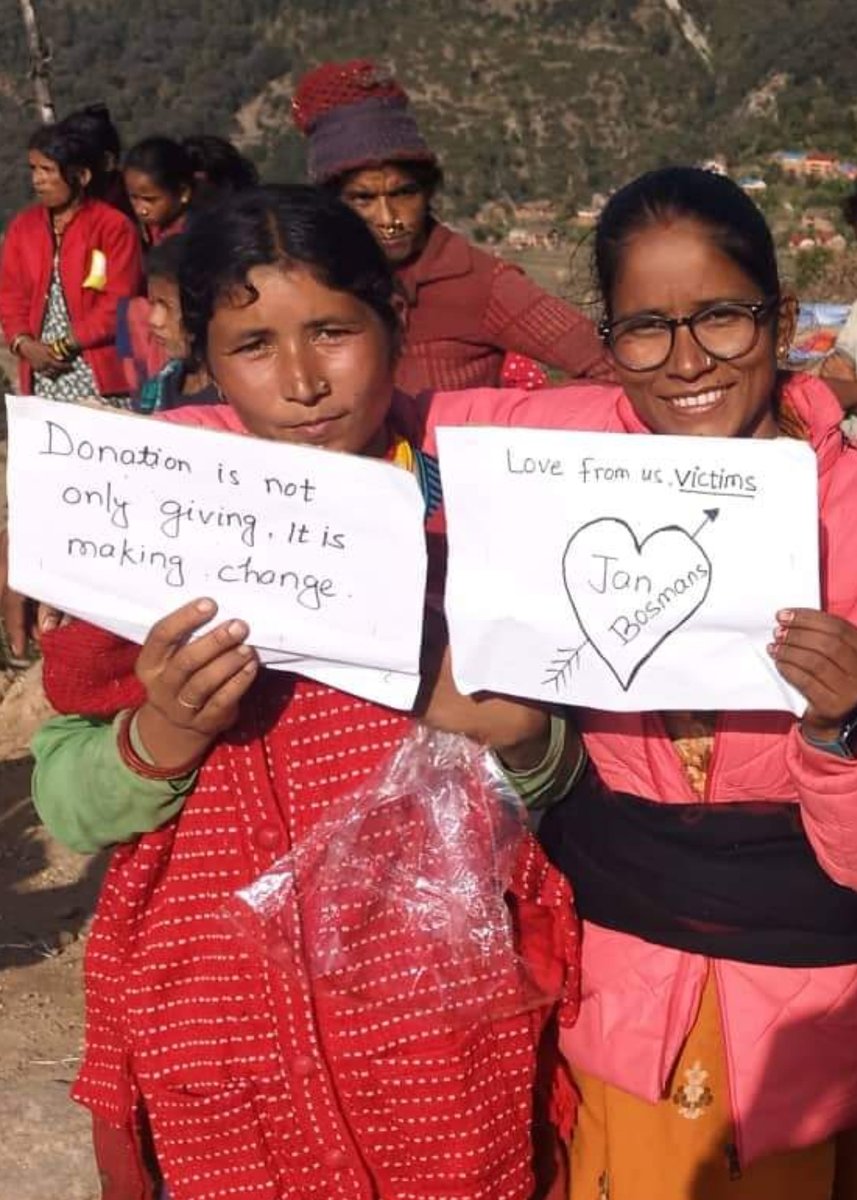 Donation is not
only giving. It is
making change.
Love from us, victims
Jan
Bosmans